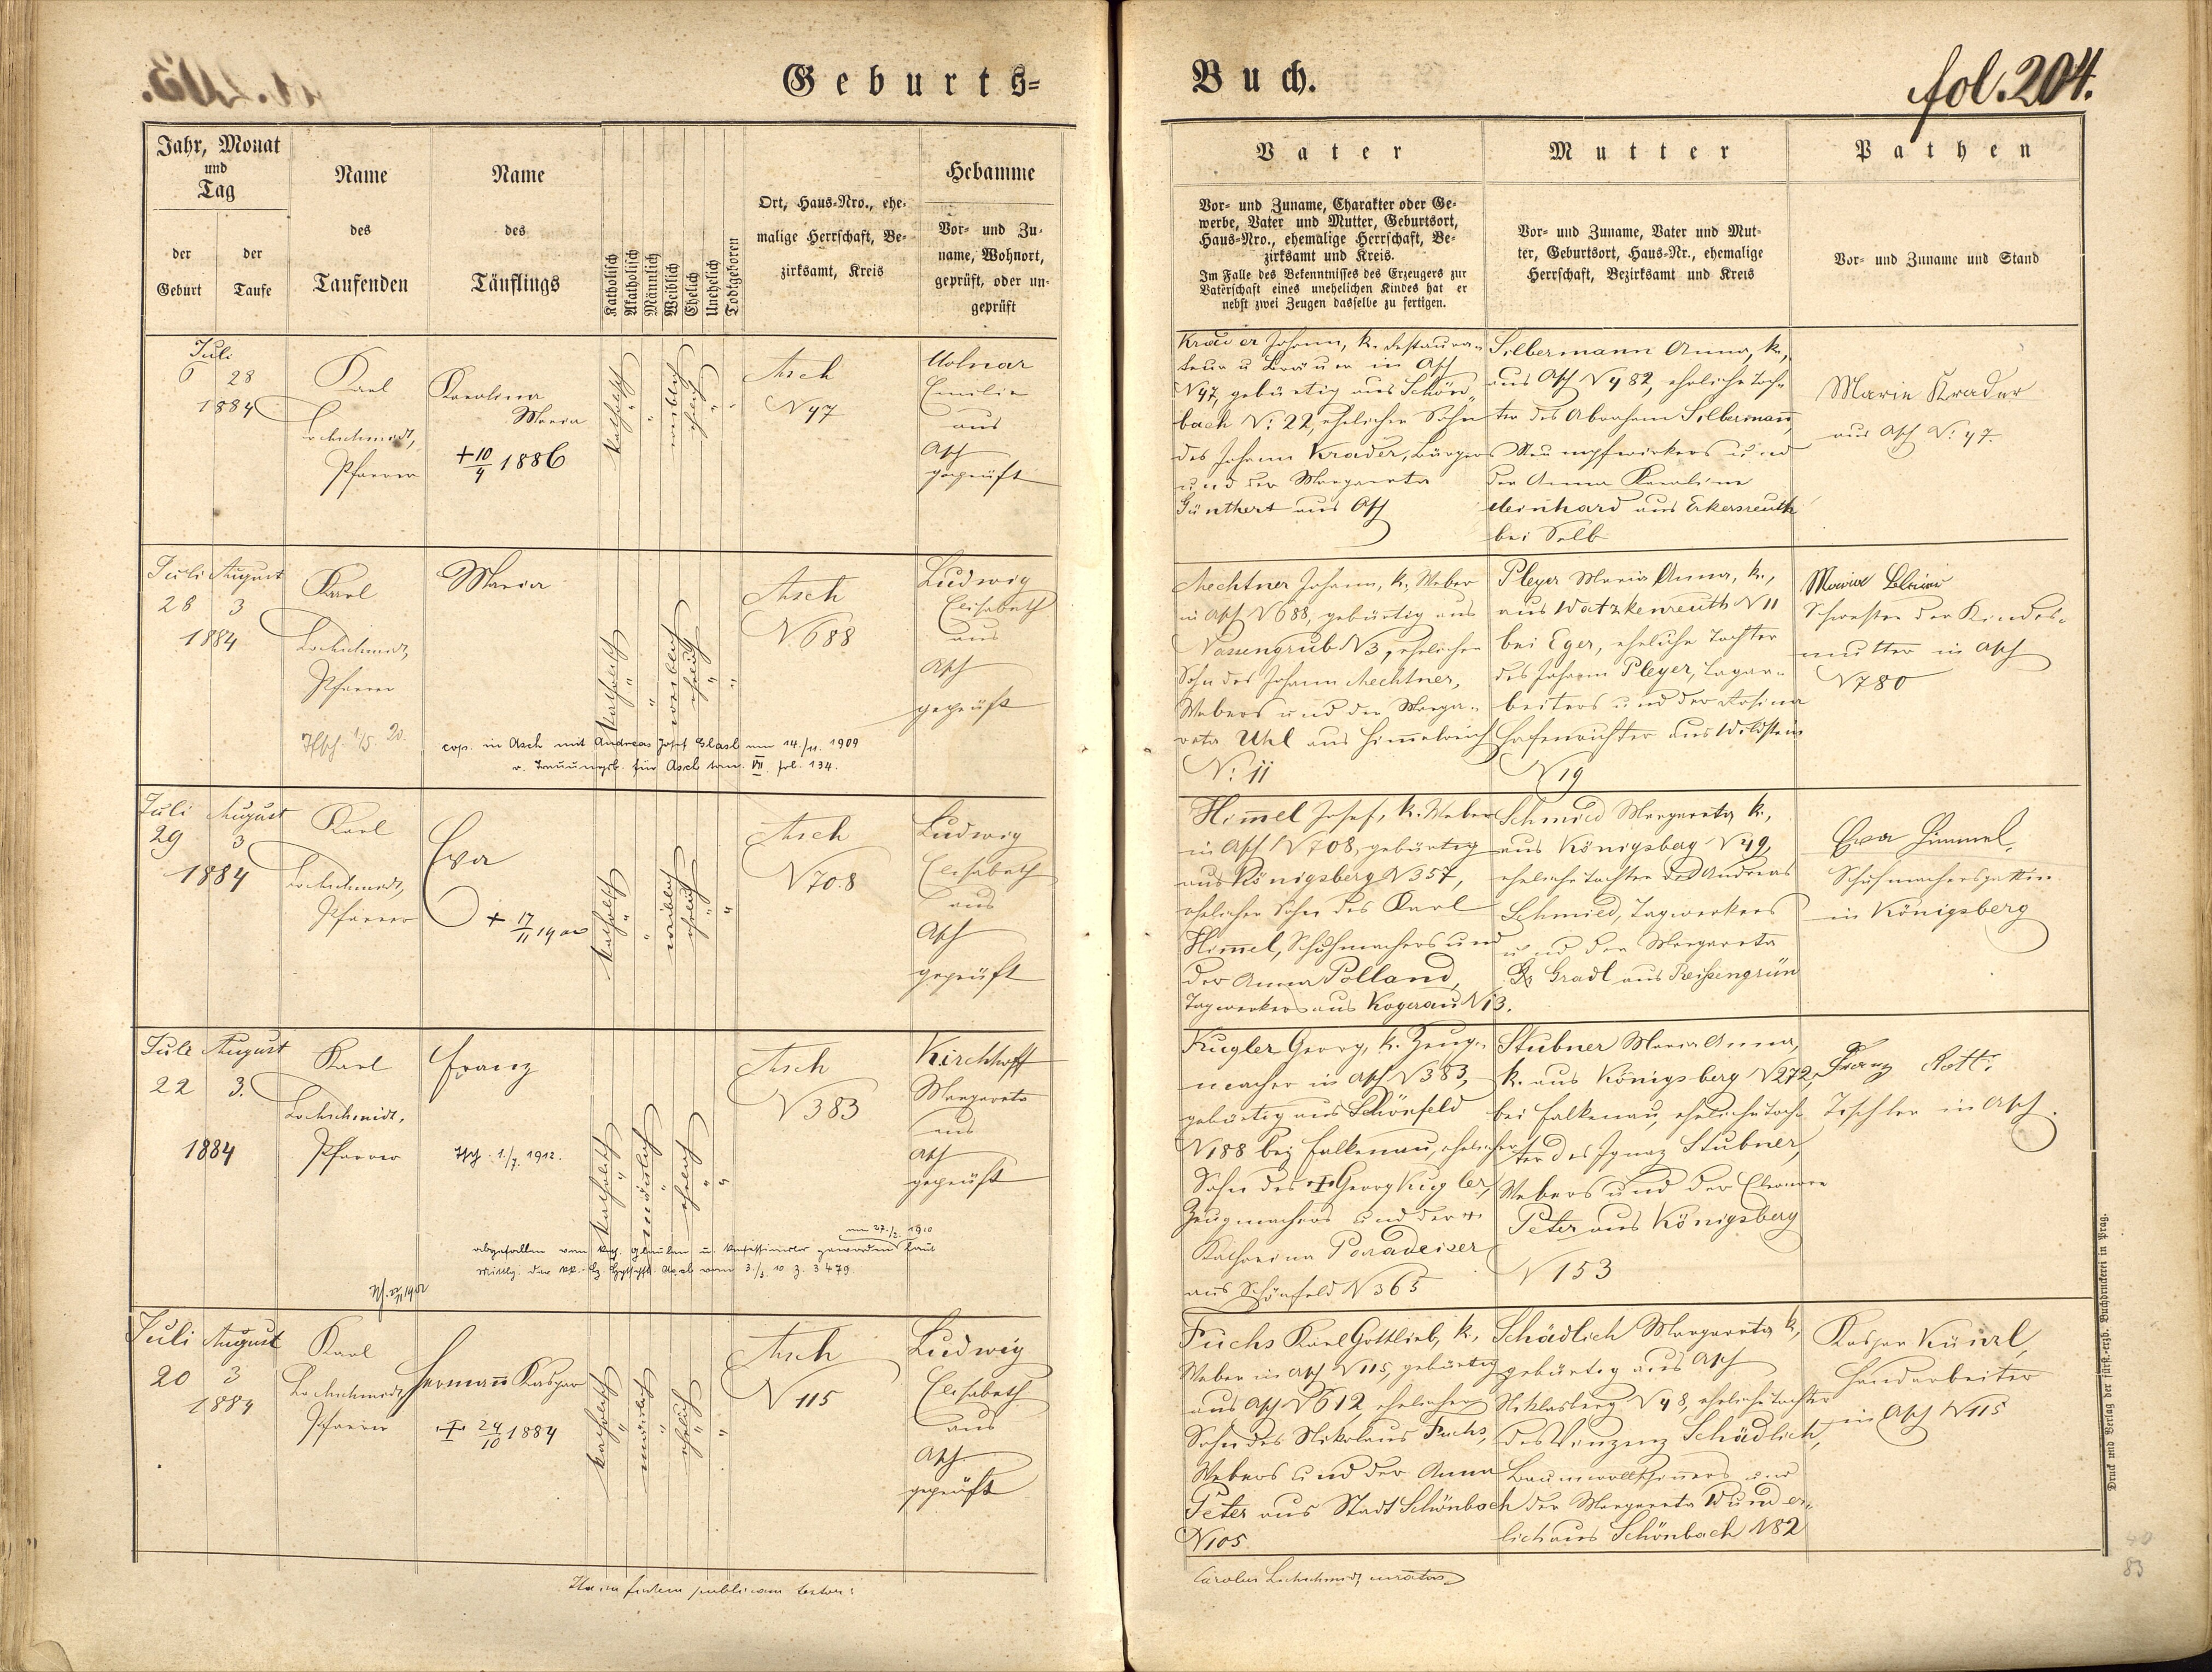 Geburts-
Buch.
fol. 204.
Jahr, Monat
und
Tag
der
Geburt
der
Taufe
Name
des
Taufenden
Name
des
Täuflings
Katholisch
Akatholisch
Männlich
Weiblich
Ehelich
Unehelich
Todtgeboren
Ort, Haus-Nro., ehe-
malige Herrschaft, Be-
zirksamt, Kreis
Hebamme
Vor- und Zu-
name, Wohnort,
geprüft, oder un-
geprüft
Vater
Vor- und Zuname, Charakter oder Ge-
werbe, Vater und Mutter, Geburtsort,
Haus-Nro., ehemalige Herrschaft, Be-
zirksamt und Kreis.
Im Falle des Bekenntnisses des Erzeugers zur
Vaterschaft eines unehelichen Kindes hat er
nebst zwei Zeugen dasselbe zu fertigen.
Mutter
Vor- und Zuname, Vater und Mut-
ter, Geburtsort, Haus-Nr., ehemalige
Herrschaft, Bezirksamt und Kreis
Pathen
Vor- und Zuname und Stand
Juli
6 28
1884
Karl
Lochschmidt,
Pfarrer
Karolina
Maria
+ 10/4 1886
katholisch
"
"
weiblich
ehelich
"
"
Asch
N 47
Emilie
aus
Asch
geprüft
Krader Johann, k. Restaura-
teur u Bräuer in Asch
N 47, gebürtig aus Schön-
bach N: 22, ehelicher Sohn
des Johann Krader, Bürgers
und der Margareta
Günthert aus Asch
Silbermann Anna, k.,
aus Asch N 482, eheliche Toch-
ter des Abraham Silbermann
Strumpfwirkers und
der Anna Karoline
Meinhard aus Erkersreuth
bei Selb
Marie Krader
aus Asch N: 47.
Juli August
28 3
1884
Karl
Lochschmidt,
Pfarrer
Maria
cop. in Asch mit Andreas Josef Glasl am 14./11. 1909
v. Trauungsb. für Asch tom. VII. fol. 134.
katholisch
"
"
weiblich
ehelich
"
"
Asch
N. 688
Ludwig
Elisabeth
aus
Asch
geprüft
Aechtner Johann, k. Weber
in Asch N 688, gebürtig aus
Nassengrub N 3, ehelicher
Sohn des Johann Aechtner,
Webers und der Marga-
reta Uhl aus Himmelreich
N: 11
Pleyer Maria Anna, k.,
aus Watzkenreuth N 11
bei Eger, eheliche Tochter
des Johann Pleyer, Tagar-
beiters und der Rosina
Hafenrichter aus Wildstein
N 19
Maria
Schwester der Kindes-
mutter in Asch
N 780
Juli August
29 3
1884
Karl
Lochschmidt,
Pfarrer
Eva
+ 17/11 1900
katholisch
"
"
weiblich
ehelich
"
"
Asch
N 708
Ludwig
Elisabeth
aus
Asch
geprüft
Himmel Josef, k. Weber
in Asch N 708, gebürtig
aus Königsberg N 357,
ehelicher Sohn des Karl
Himmel, Schuhmachers und
der Anna Polland,
Tagwerkers aus Kogerau N 13.
Schmied Margareta k.,
aus Königsberg N 49,
eheliche Tochter des Andreas
Schmied, Tagwerkers
und der Margareta
Gradl aus Reißengrün
Eva Himmel,
Schuhmachersgattin
in Königsberg
Juli August
22 3.
1884
Karl
Lochschmidt,
Pfarrer
Franz
1./7. 1912.
katholisch
"
männlich
"
ehelich
"
"
abgefallen vom kath. Glauben u. konfessionslos geworden laut
am 27./2. 1910
Asch vom 3./3. 10 Z. 3479
Asch
N 383
Kirchhoff
Margareta
aus
Asch
geprüft
Kugler Georg, k. Zeug-
macher in Asch N 383,
gebürtig aus Schönfeld
N 188 bei Falkenau, ehelicher
Sohn des + Georg Kugler,
Zeugmachers und der +
Katharina Paradeiser
aus Schönfeld N 365
Stubner Maria Anna,
k. aus Königsberg N 272,
bei Falkenau, eheliche Toch-
ter des Ignaz Stubner,
Webers und der Eleonore
Peter aus Königsberg
N 153
Franz
Tischler in Asch.
Juli August
20 3
1884
Karl
Lochschmidt,
Pfarrer
Hermann Kaspar
+ 24/10 1884
katholisch
"
männlich
"
ehelich
"
"
Asch
N 115
Ludwig
Elisabeth
aus
Asch
geprüft
Fuchs Karl Gottlieb, k.,
Weber in Asch N 115, gebürtig
aus Asch N 612 ehelicher
Sohn des Nikolaus Fuchs,
Webers und der Anna
Peter aus Stadt Schönbach
N 105
Schädlich Margareta k.,
gebürtig aus Asch
Niklasberg N 48, eheliche Tochter
des Vinzenz Schädlich,
Baumwollspinners und
der Margareta Wunder-
lich aus Schönbach N 82
Kaspar Künzl,
Handarbeiter
in Asch N 115
In fidem publicam testor:
Carolus Lochschmidt, curatus
Druck und Verlag der fürst.-erzb. Buchdruckerei in Prag.
83